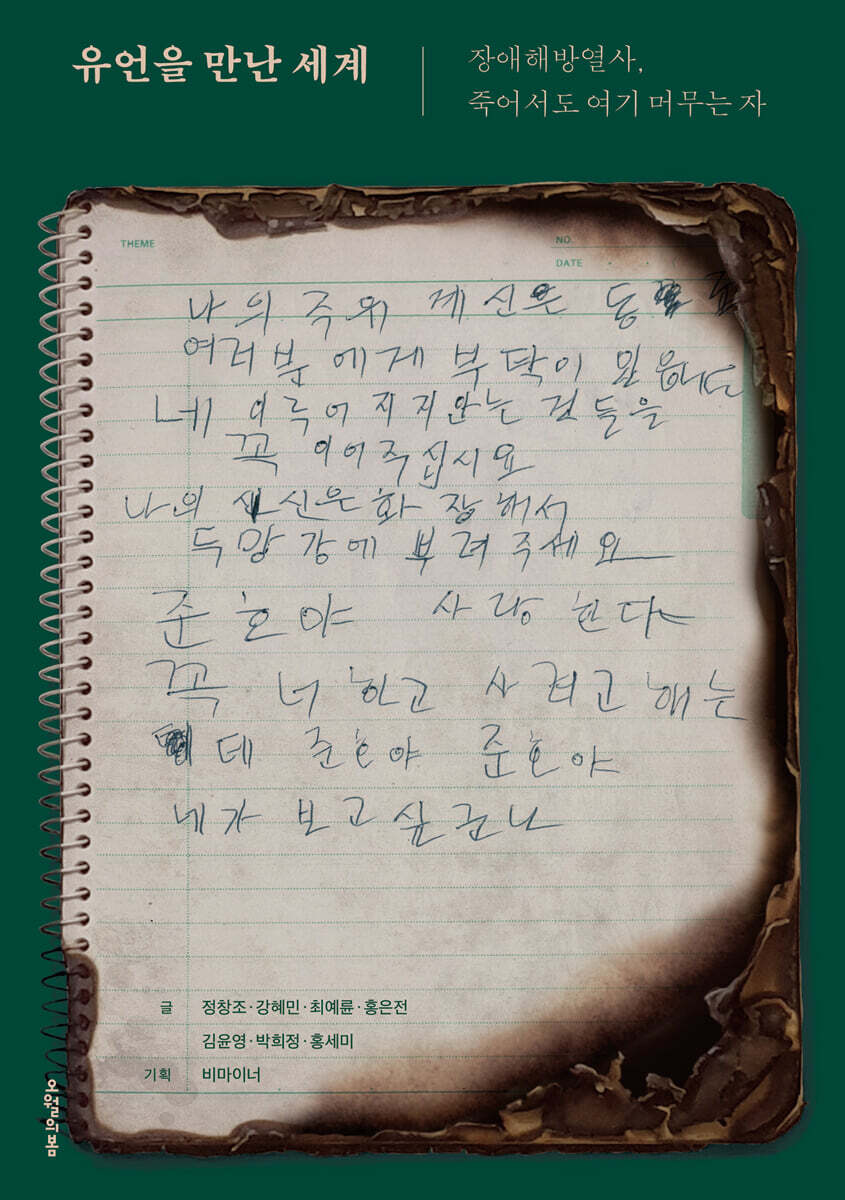 유언을 만난 세계
장애해방열사,
죽어서도 여기 머무는 자
THEME
NO.
DATE
나의 주위 계신은
여러분에게 부탁이 있읍니다
네 이루어지지안는 것들을
꼭 이어주십시요
나의 시신은 화장해서
두망강에 부려주세요
준호야 사랑한다
꼭 너하고 사려고 해는
데 준호야 준호야
네가 보고싶군나
글 정창조·강혜민·최예륜·홍은전
김윤영·박희정·홍세미
기획 비마이너
오월의봄